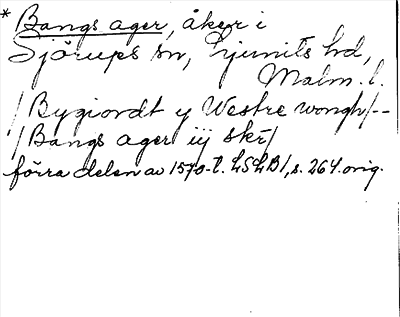 * Bangs ager, åker i
Sjörups sn, Ljunits hd,
Malm. l.
/Bygiordt y Westre wongh/--
/Bangs ager iij skr/
förra delen av 1570-t. LSLB1, s. 264. orig.